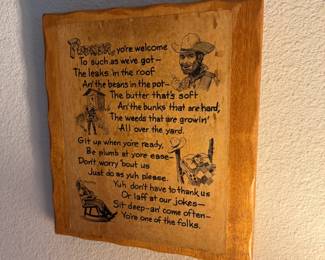 Pardner, yo're welcome
To such as we've got—
The leaks 'in the roof
An' the beans in the pot—
The butter that's soft
An' the bunks that are hard,
The weeds that are growin'
All over the yard.
Git up when yo're ready,
Be plumb at yore ease—
Don't worry 'bout us
Just do as yuh please.
Yuh don't have to thank us
Or laff at our jokes—
Sit deep—an' come often—
Yo're one of the folks.